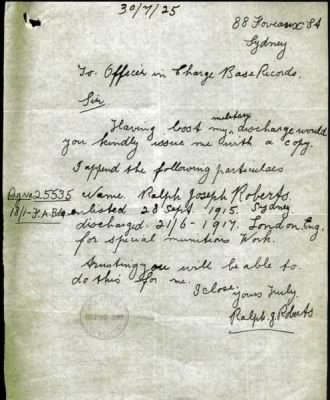 30/7/25
88 Foveaux St
Sydney
To. Officer in Charge Base Records.
Sir
Having lost my military discharge would
you kindly issue me with a copy.
I append the following particulars
Reg No 25535 Name. Ralph Joseph Roberts.
enlisted 28 Sept. 1915. Sydney
discharged. 21/6-1917. London, Eng.
for special munitions Work.
trusting you will be able to
do this for me.
I close,
yours truly.
Ralph. J. Roberts